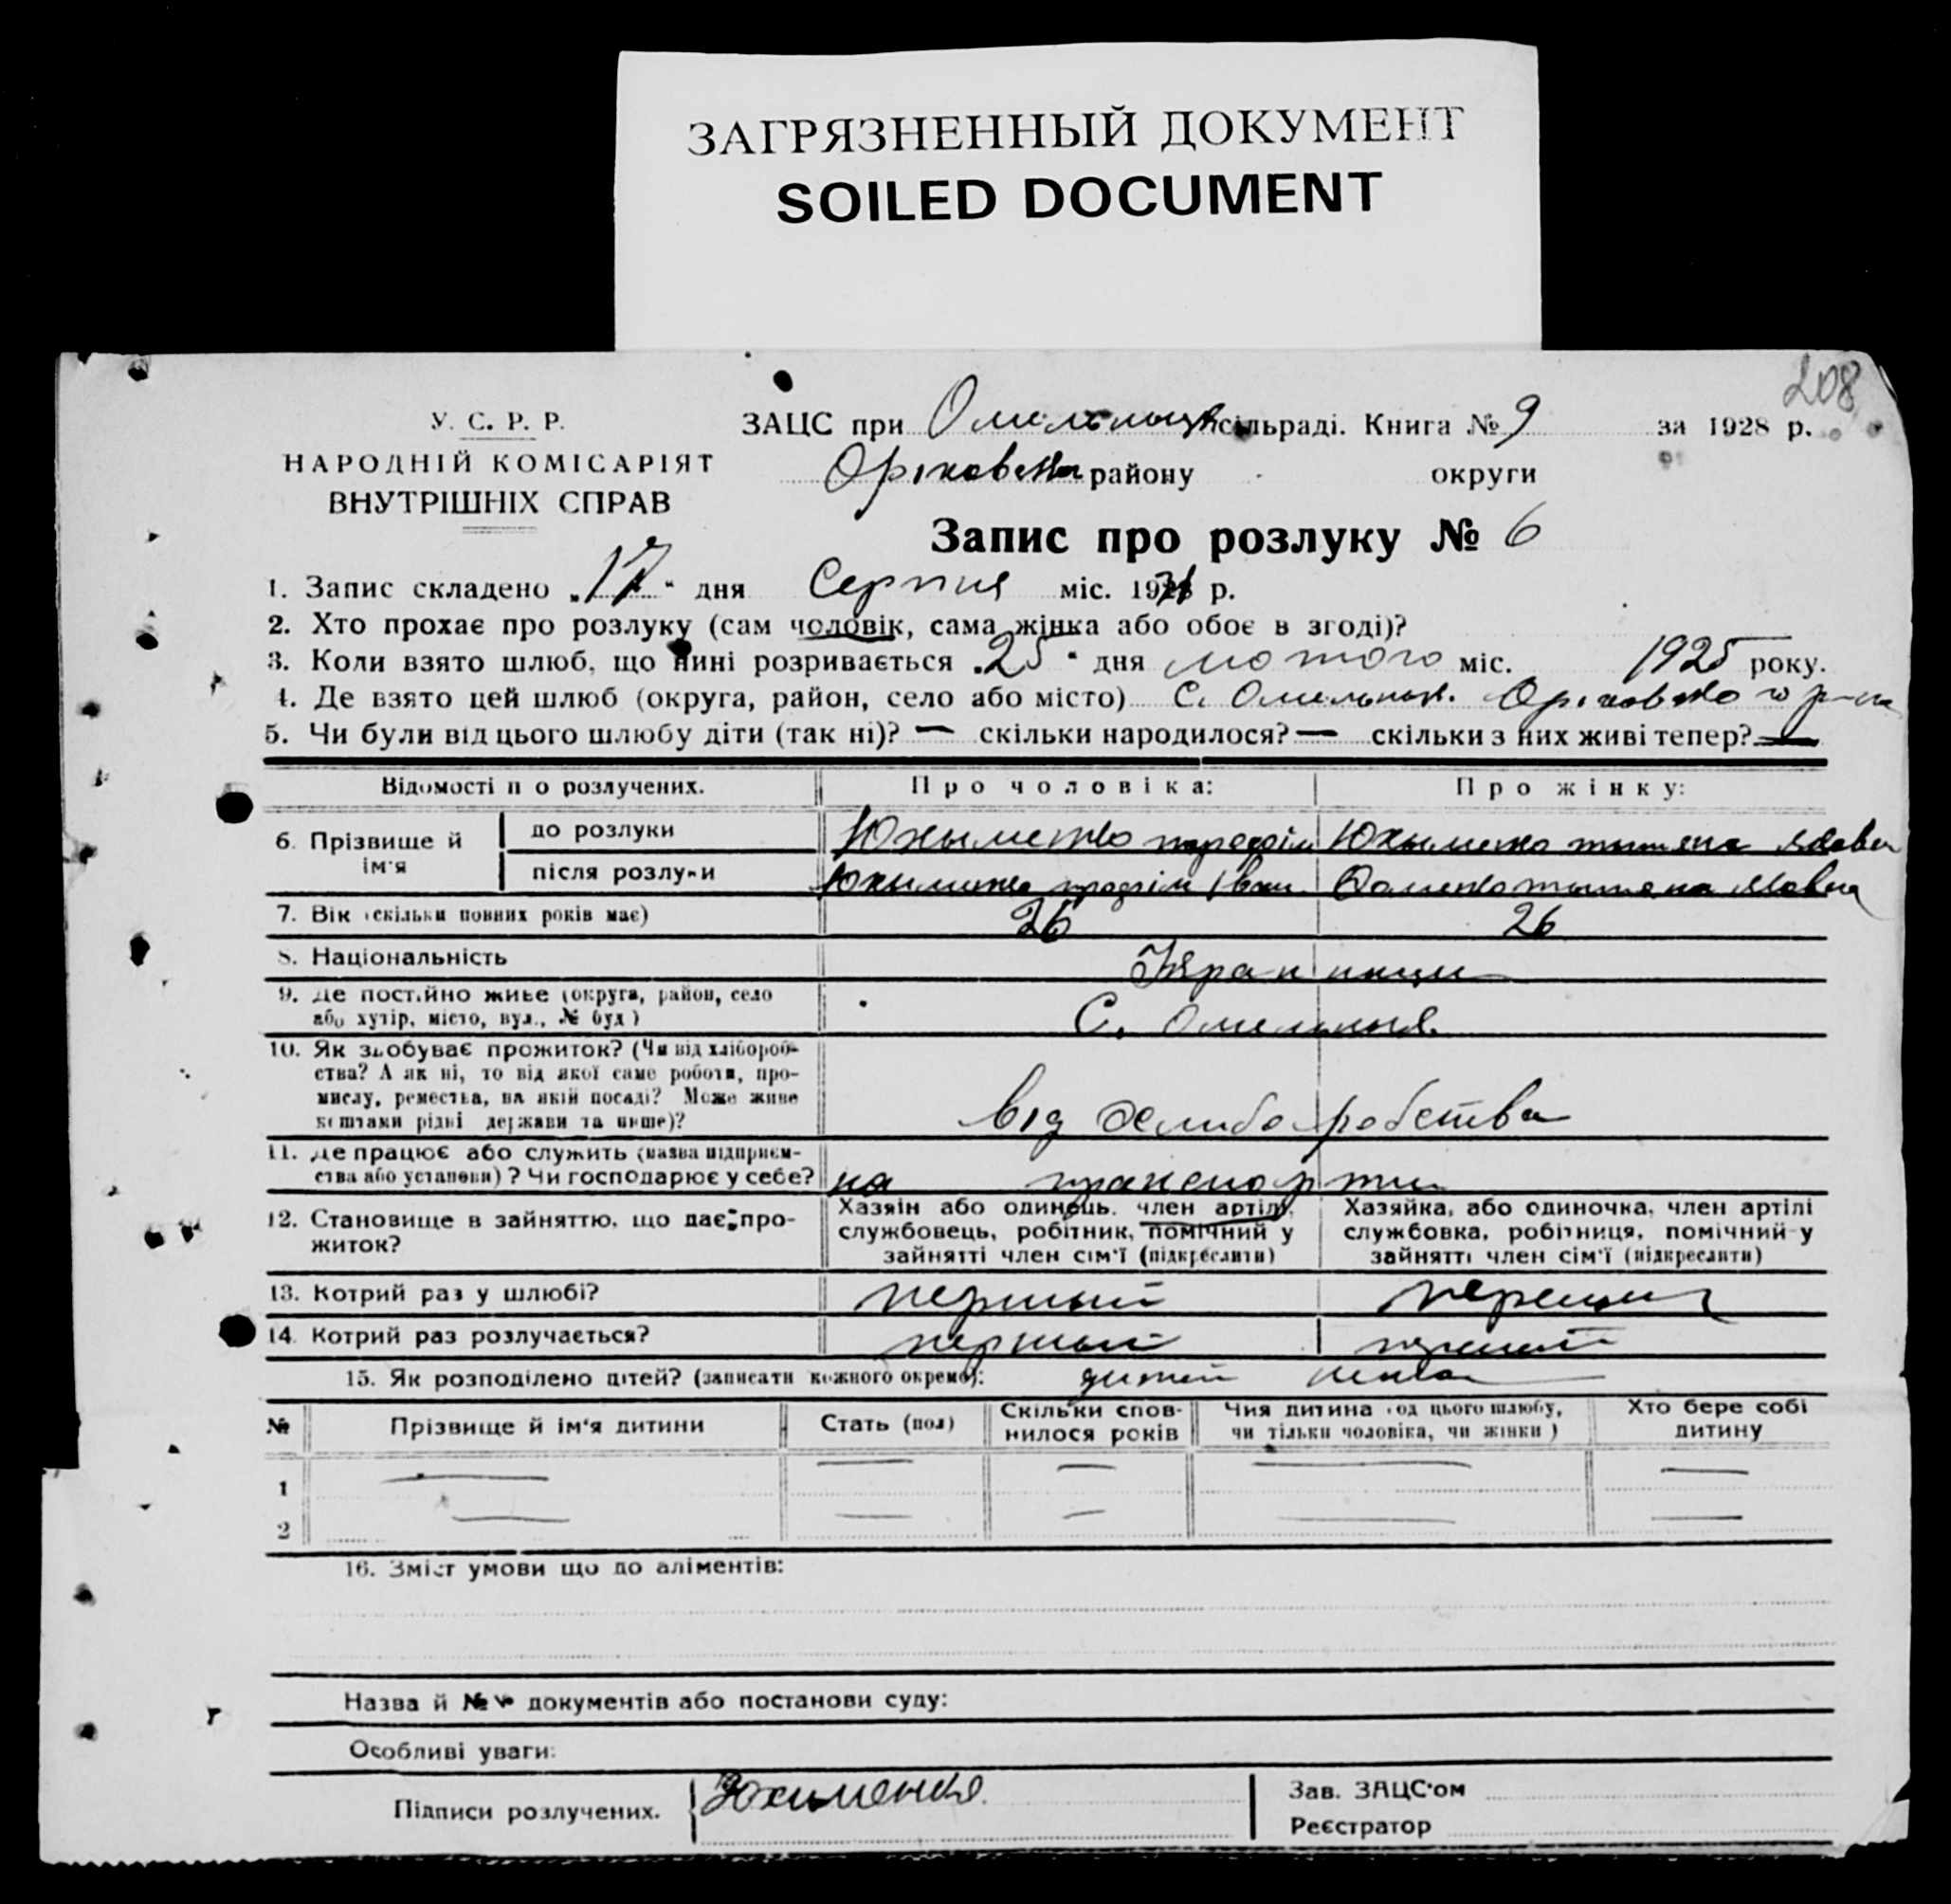 ЗАГРЯЗНЕННЫЙ ДОКУМЕНТ
SOILED DOCUMENT
208
У. С. Р. Р.
НАРОДНІЙ КОМІСАРІЯТ
ВНУТРІШНІХ СПРАВ
ЗАЦС при сільраді. Книга № 9 за 1928 р.
району округи
Запис про розлуку № 6
1. Запис складено „17“ дня Серпня міс. р.
2. Хто прохає про розлуку (сам чоловік, сама жінка або обоє в згоді)?
3. Коли взято шлюб, що нині розривається „25“ дня лютого міс. 1925 року.
4. Де взято цей шлюб (округа, район, село або місто) С. Омельник.
5. Чи були від цього шлюбу діти (так ні)? — скільки народилося? — скільки з них живі тепер? —
Відомості по розлучених. Про чоловіка: Про жінку:
6. Прізвище й ім'я
до розлуки Юхыменко Юхыменко
після розлуки Юхыменко
7. Вік (скільки повних років має) 26 26
8. Національність
9. Де постійно живе (округа, район, село
або хутір, місто, вул., № буд) С.
10. Як здобуває прожиток? (Чи від хлібороб-
ства? А як ні, то від якої саме роботи, про-
мислу, ремества, на якій посаді? Може живе
коштами рідні держави та инше)? від
11. Де працює або служить (назва підприєм-
ства або установи)? Чи господарює у себе? на транспорти
12. Становище в зайняттю, що дає про-
житок?
Хазяін або одинець, член артілі,
службовець, робітник, помічний у
зайнятті член сім'ї (підкреслити)
Хазяйка, або одиночка, член артілі
службовка, робітниця, помічний у
зайнятті член сім'ї (підкреслити)
13. Котрий раз у шлюбі? первый
14. Котрий раз розлучається? первый
15. Як розподілено дітей? (записати кожного окремо): дитей нема
№ Прізвище й ім'я дитини Стать (пол) Скільки спов-
нилося років Чия дитина (од цього шлюбу,
чи тільки чоловіка, чи жінки) Хто бере собі
дитину
1 — — — — —
2 — — — — —
16. Зміст умови що до аліментів:
Назва й №№ документів або постанови суду:
Особливі уваги:
Підписи розлучених. Юхименко
Зав. ЗАЦС'ом
Реєстратор